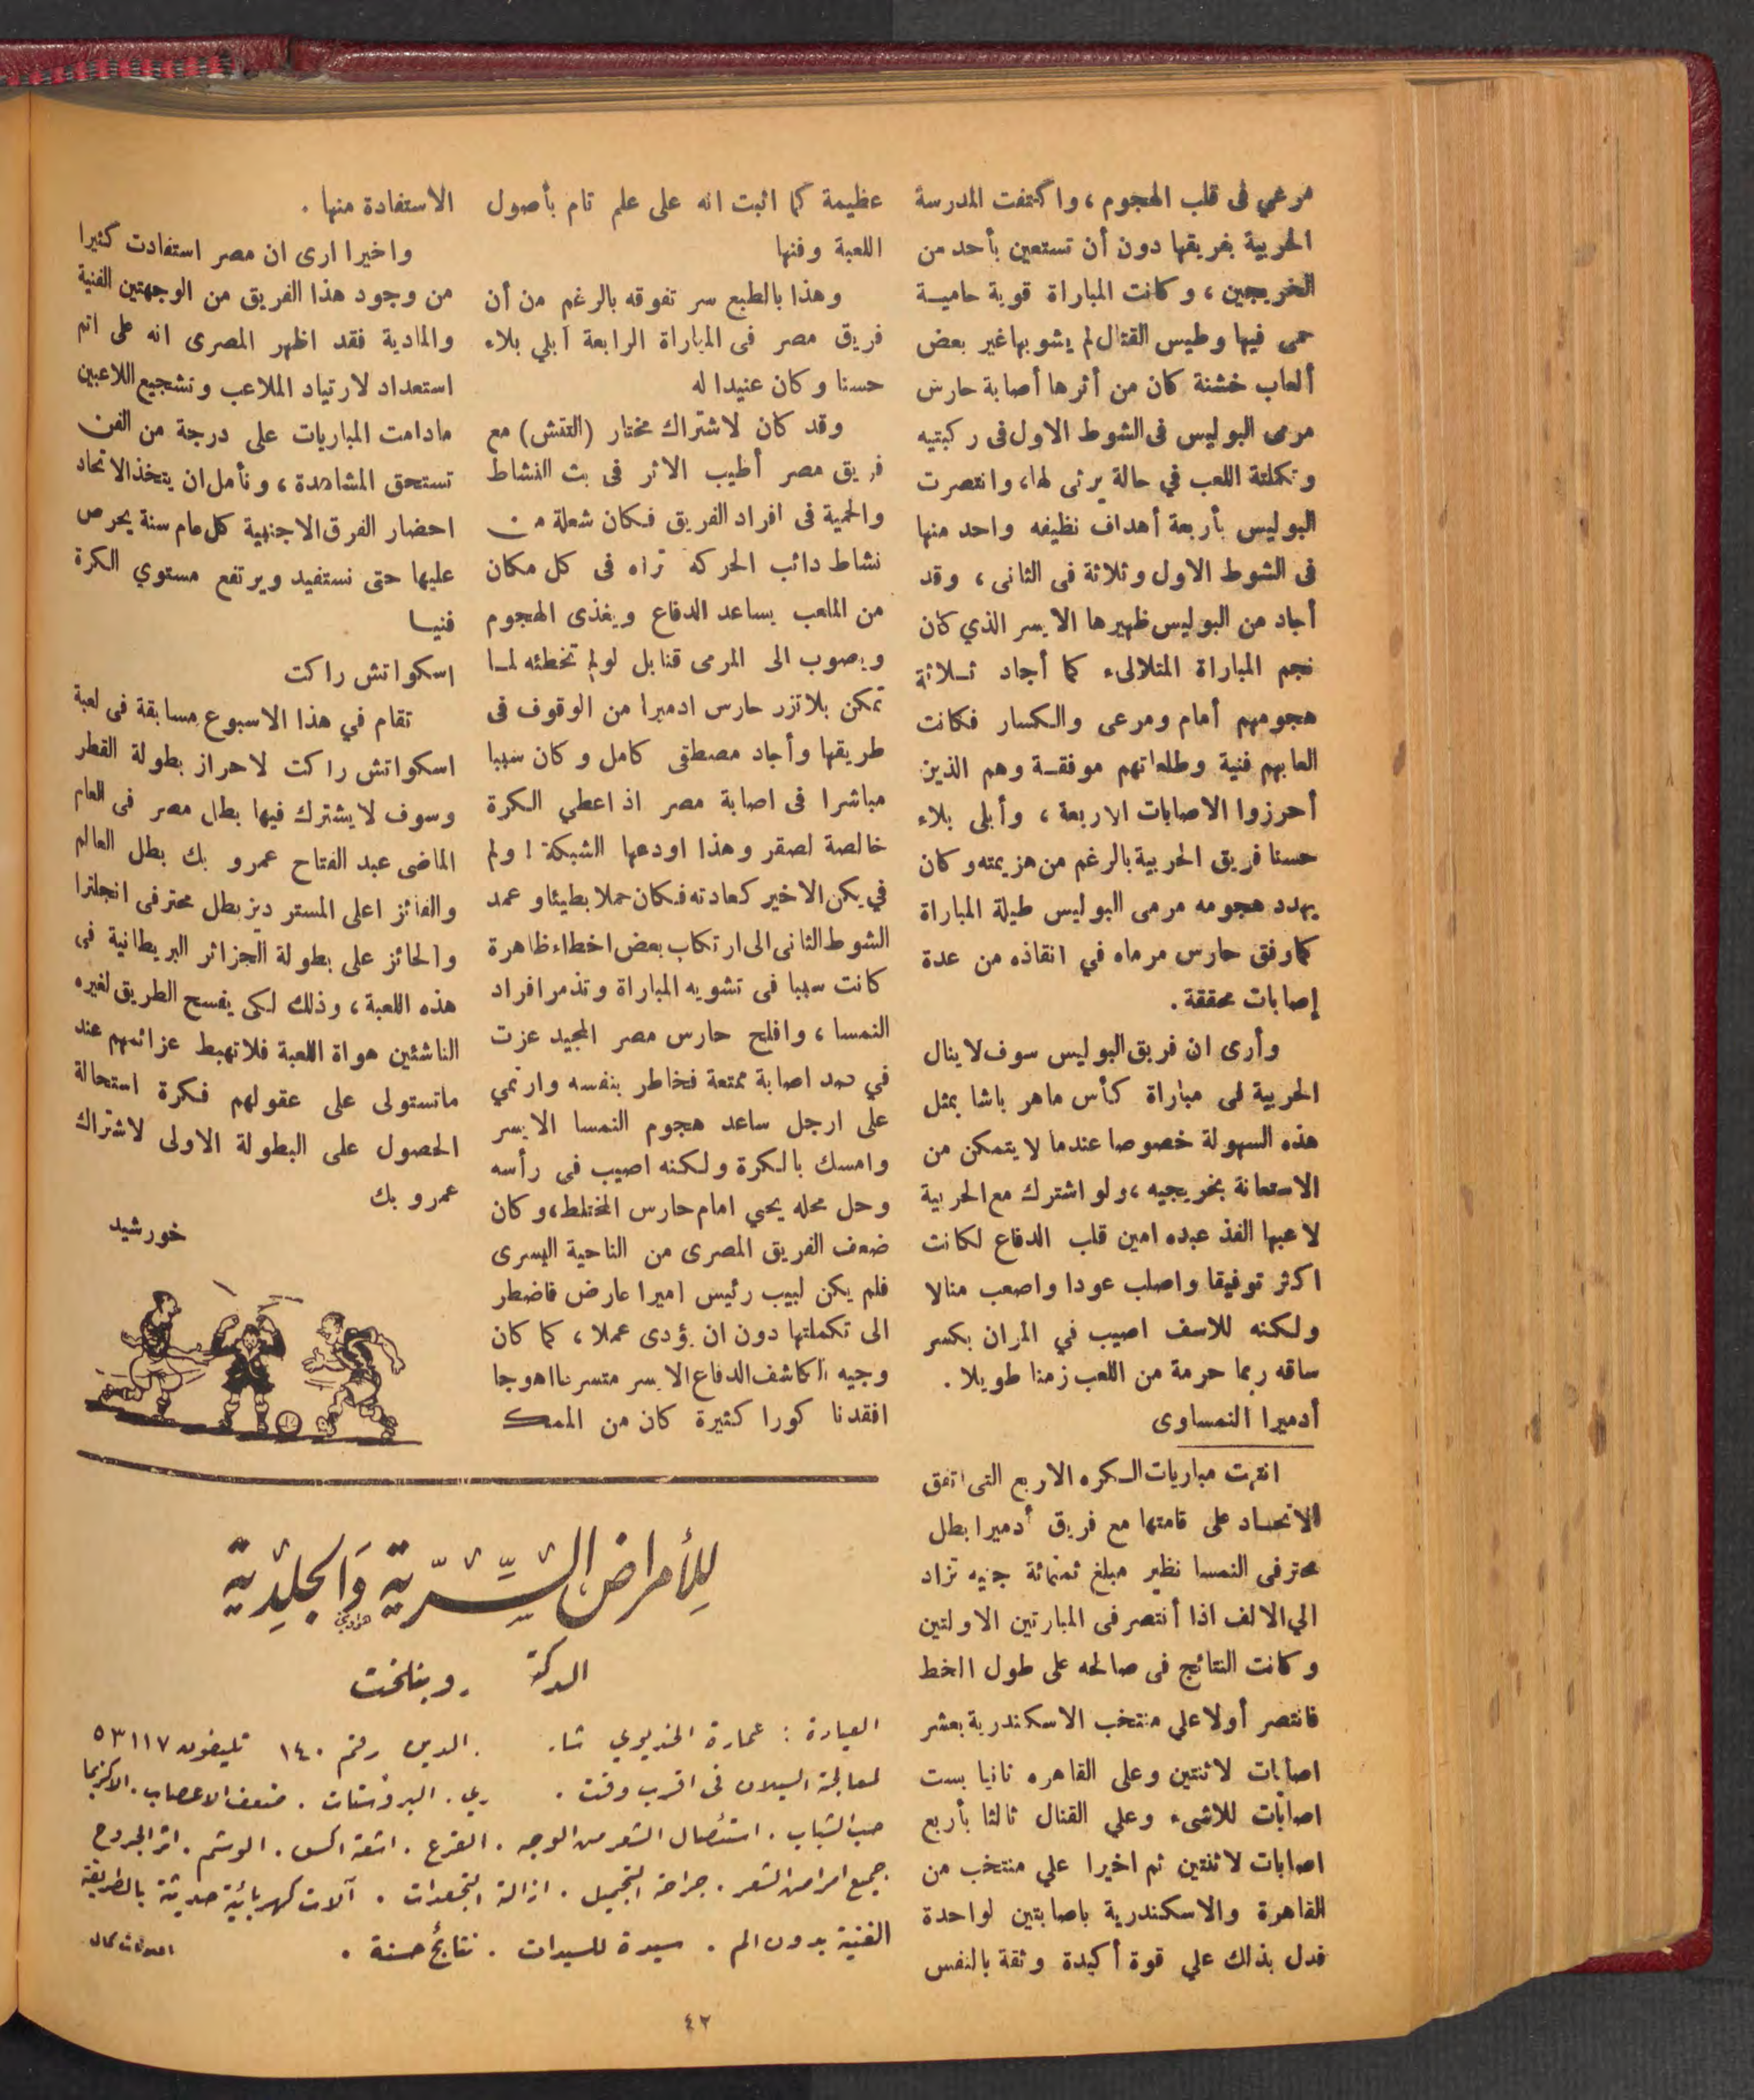 مرعي فى قلب الهجوم ، واكتفت المدرسة
الحربية بفريقها دون أن تستعين بأحد من
الخريجين ، وكانت المباراة قوية حاميـة
حمى فيها وطيس القتال لم يشوبها غير بعض
ألعاب خشنة كان من أثرها أصابة حارس
مرمى البوليس فى الشوط الاول فى ركبتيه
وتكملتة اللعب في حالة يرثى لها ، وانتصرت
البوليس بأربعة أهداف نظيفه واحد منها
فى الشوط الاول وثلاثة فى الثانى ، وقد
أجاد من البوليس ظهيرها الايسر الذي كان
نجم المباراة المتلالىء كما أجاد ثـلاثة
هجومهم أمام ومرعى والكسار فكانت
العابهم فنية وطلعاتهم موفقـة وهم الذين
أحرزوا الاصابات الاربعة ، وأبلى بلاء
حسنا فريق الحربية بالرغم من هزيمته وكان
يهدد هجومه مرمى البوليس طيلة المباراة
كما وفق حارس مرماه في انقاذه من عدة
إصابات محققة .
وأرى ان فريق البوليس سوف لا ينال
الحربية فى مباراة كأس ماهر باشا بمثل
هذه السهولة خصوصا عندما لا يتمكن من
الاستعانة بخريجيه ، ولو اشترك مع الحربية
لاعبها الفذ عبده امين قلب الدفاع لكانت
اكثر توفيقا واصلب عودا واصعب منالا
ولكنه للاسف اصيب في المران بكسر
ساقه ربما حرمة من اللعب زمنا طويلا .
أدميرا النمساوى
انتهت مباريات الـكره الاربع التى اتفق
الاتحـاد على قامتها مع فريق أدميرا بطل
محترفى النمسا نظير مبلغ ثمنمائة جنيه تزاد
الي الالف اذا أنتصر فى المبارتين الاولتين
وكانت النتائج فى صالحه على طول الخط
فانتصر أولا علي منتخب الاسكندرية بعشر
اصابات لاثنتين وعلى القاهره ثانيا بست
اصابات للاشىء وعلي القنال ثالثا بأربع
اصابات لاثنتين ثم اخيرا علي منتخب من
القاهرة والاسكندرية باصابتين لواحدة
فدل بذلك علي قوة أكيدة وثقة بالنفس
عظيمة كما اثبت انه على علم تام بأصول
اللعبة وفنها
وهذا بالطبع سر تفوقه بالرغم من أن
فريق مصر فى المباراة الرابعة أبلي بلاء
حسنا وكان عنيدا له
وقد كان لاشتراك مختار (التتش) مع
فريق مصر أطيب الاثر فى بث النشاط
والحمية فى افراد الفريق فكان شعلة من
نشاط دائب الحركه تراه فى كل مكان
من الملعب يساعد الدفاع ويغذى الهجوم
ويصوب الى المرمى قنابل لو لم تخطئه لمـا
تمكن بلاتزر حارس ادميرا من الوقوف فى
طريقها وأجاد مصطفى كامل وكان سببا
مباشرا فى اصابة مصر اذ اعطي الكرة
خالصة لصقر وهذا اودعها الشبكة ! ولم
في يكن الاخير كعادته فكان حملا بطيئا وعمد
الشوط الثانى الى ارتكاب بعض اخطاء ظاهرة
كانت سببا فى تشويه المباراة وتذمر افراد
النمسا ، وافلح حارس مصر المجيد عزت
في صد اصابة ممتعة فخاطر بنفسه وارتمي
على ارجل ساعد هجوم النمسا الايسر
وامسك بالكرة ولكنه اصيب فى رأسه
وحل محله يحي امام حارس المختلط ، وكان
ضعف الفريق المصرى من الناحية اليسرى
فلم يكن لبيب رئيس اميرا عارض فاضطر
الى تكملتها دون ان يؤدى عملا ، كما كان
وجيه الكاشف الدفاع الايسر متسرعا اهوجا
افقدنا كورا كثيرة كان من الممك
الاستفادة منها .
واخيرا ارى ان مصر استفادت كثيرا
من وجود هذا الفريق من الوجهتين الفنية
والمادية فقد اظهر المصرى انه على اتم
استعداد لارتياد الملاعب وتشجيع اللاعبين
مادامت المباريات على درجة من الفن
تستحق المشاهدة ، ونأمل ان يتخذ الاتحاد
احضار الفرق الاجنبية كل عام سنة يحرص
عليها حتى نستفيد ويرتفع مستوي الكرة
فنيـا
اسكواتش راكت
تقام في هذا الاسبوع مسابقة فى لعبة
اسكواتش راكت لاحراز بطولة القطر
وسوف لا يشترك فيها بطل مصر فى العام
الماضى عبد الفتاح عمرو بك بطل العالم
والفائز اعلى المستر ديز بطل محترفى انجلترا
والحائز على بطولة الجزائر البريطانية فى
هذه اللعبة ، وذلك لكى يفسح الطريق لغيره
الناشئين هواة اللعبة فلا تهبط عزائمهم عند
ماتستولى على عقولهم فكرة استحالة
الحصول على البطولة الاولى لاشتراك
عمرو بك
خورشيد
للأمراض السّرّية وَالجلدية
الدكتو روبنلخت
العيادة : عمارة الخديوي شا. .الدين رقم ١٤٠ تليفون ٥٣١١٧
لمعالجة السيلان فى اقرب وقت . ري . البروستات . ضعف الاعصاب . الاكزيما
حب الشباب . استئصال الشعر من الوجه . القرع . اشعة اكس . الوشم . اثر الجروح
جميع امراض الشعر . جراحة التجميل . ازالة التجعدات . آلات كهربائية حديثة بالطريقة
الفنية بدون الم . سيدة للسيدات . نتائج حسنة .
٤٢